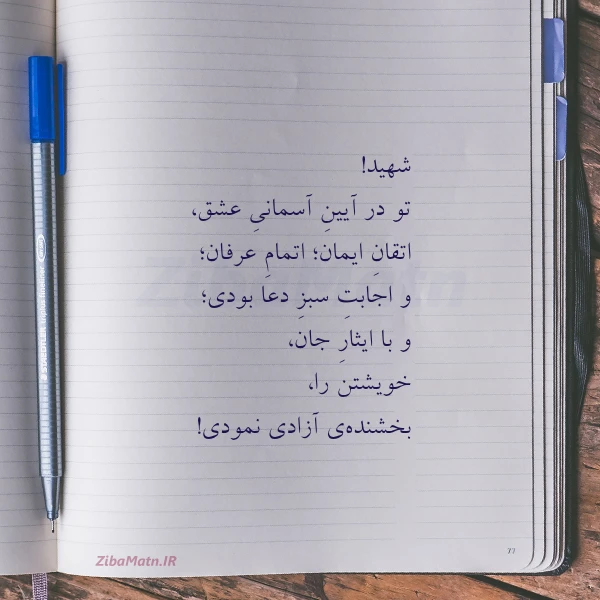 شهید!
تو در آیینِ آسمانیِ عشق،
اتقانِ ایمان؛ اتمامِ عرفان؛
و اجابتِ سبزِ دعا بودی؛
و با ایثارِ جان،
خویشتن را،
بخشنده‌ی آزادی نمودی!
ZibaMatn
ZibaMatn.IR
77